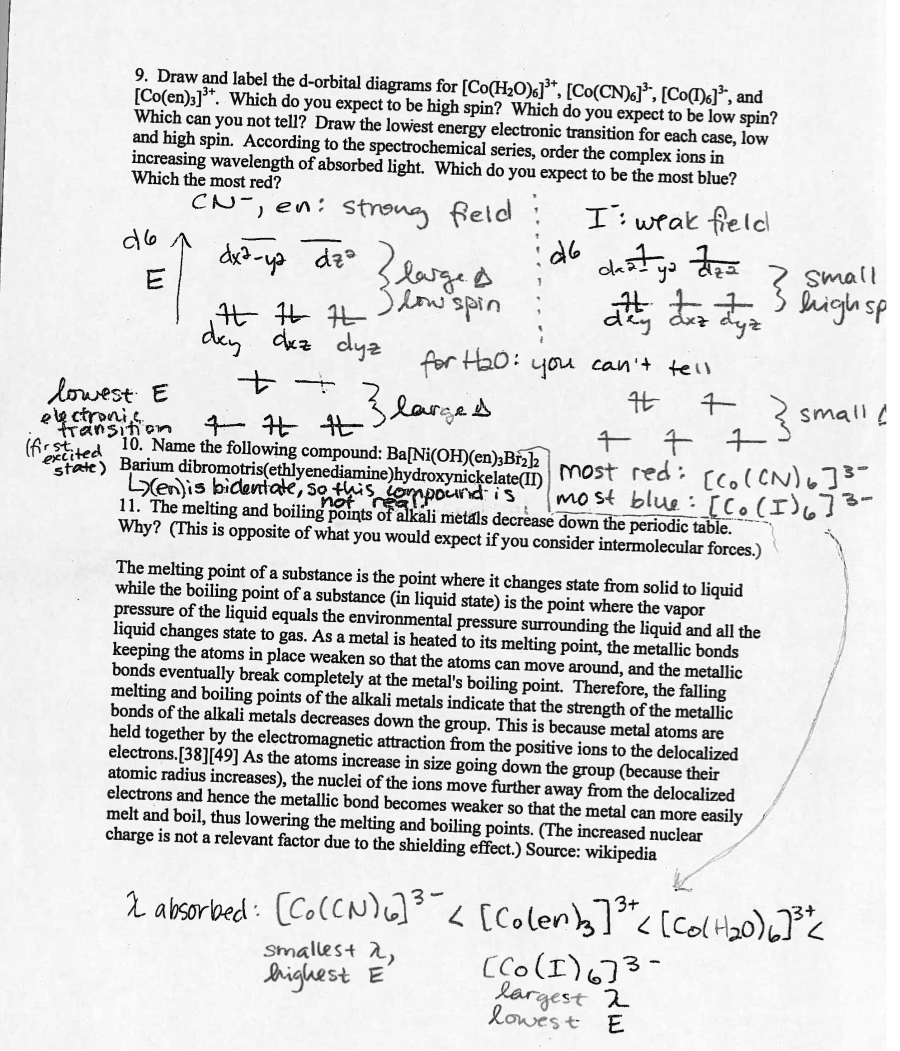 9. Draw and label the d-orbital diagrams for [Co(H₂O)₆]³⁺, [Co(CN)₆]³⁻, [Co(I)₆]³⁻, and
[Co(en)₃]³⁺. Which do you expect to be high spin? Which do you expect to be low spin?
Which can you not tell? Draw the lowest energy electronic transition for each case, low
and high spin. According to the spectrochemical series, order the complex ions in
increasing wavelength of absorbed light. Which do you expect to be the most blue?
Which the most red?
CN⁻, en: strong field
I⁻: weak field
d6
E
dx²-y² dz²
large Δ
low spin
dxy dxz dyz
d6
dx²-y² dz²
small
high sp
dxy dxz dyz
for H2O: you can't tell
lowest E
electronic
transition
(first
excited
state)
large Δ
small Δ
10. Name the following compound: Ba[Ni(OH)(en)₃Br₂]₂
Barium dibromotris(ethlyenediamine)hydroxynickelate(II)
↳(en) is bidentate, so this compound is
not real!
most red: [Co(CN)6]3-
most blue: [Co(I)6]3-
11. The melting and boiling points of alkali metals decrease down the periodic table.
Why? (This is opposite of what you would expect if you consider intermolecular forces.)
The melting point of a substance is the point where it changes state from solid to liquid
while the boiling point of a substance (in liquid state) is the point where the vapor
pressure of the liquid equals the environmental pressure surrounding the liquid and all the
liquid changes state to gas. As a metal is heated to its melting point, the metallic bonds
keeping the atoms in place weaken so that the atoms can move around, and the metallic
bonds eventually break completely at the metal's boiling point. Therefore, the falling
melting and boiling points of the alkali metals indicate that the strength of the metallic
bonds of the alkali metals decreases down the group. This is because metal atoms are
held together by the electromagnetic attraction from the positive ions to the delocalized
electrons.[38][49] As the atoms increase in size going down the group (because their
atomic radius increases), the nuclei of the ions move further away from the delocalized
electrons and hence the metallic bond becomes weaker so that the metal can more easily
melt and boil, thus lowering the melting and boiling points. (The increased nuclear
charge is not a relevant factor due to the shielding effect.) Source: wikipedia
λ absorbed: [Co(CN)6]3- < [Co(en)3]3+ < [Co(H2O)6]3+ <
smallest λ,
highest E
[Co(I)6]3-
largest λ
lowest E